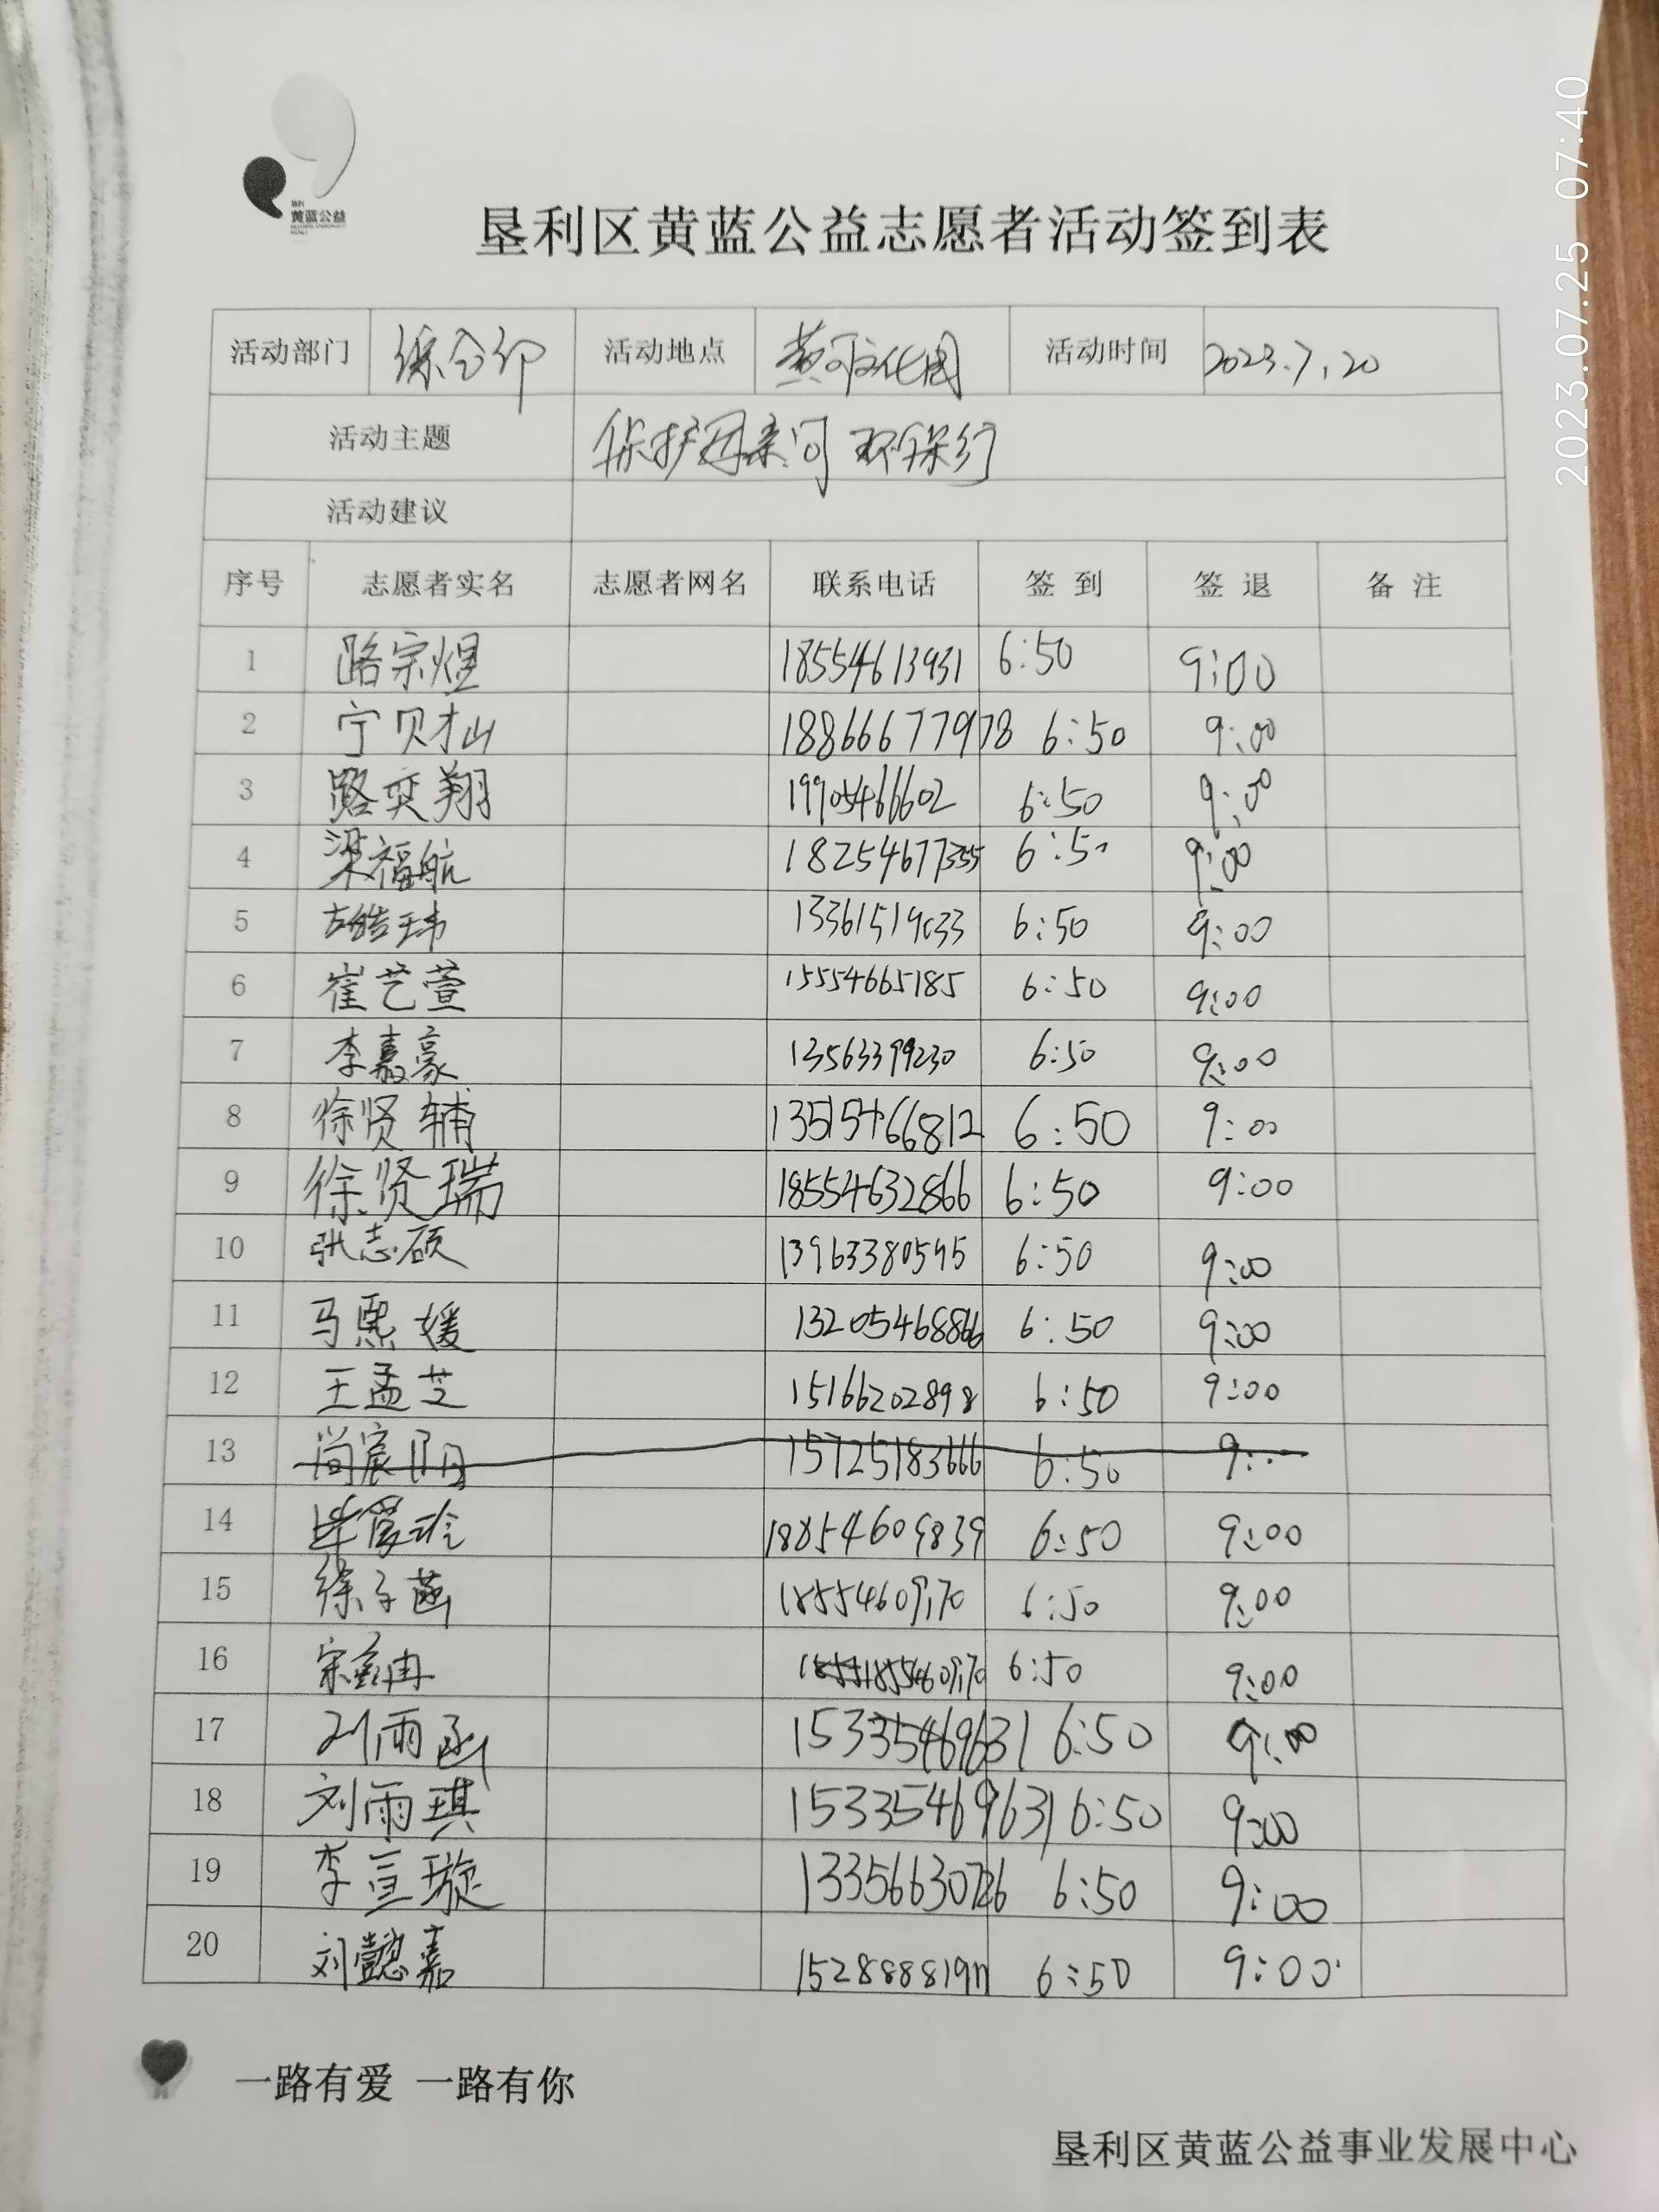 黄蓝公益
垦利区黄蓝公益志愿者活动签到表
2023.07.25 07:40
活动部门 综合部 活动地点 黄河文化园 活动时间 2023.7.20
活动主题 保护母亲河 环保行
活动建议
序号 志愿者实名 志愿者网名 联系电话 签到 签退 备注
1 路宗煜 18554613931 6:50 9:00
2 宁贝杣 18866677978 6:50 9:00
3 路奕翔 19905466602 6:50 9:00
4 梁福航 18254677355 6:50 9:00
5 古皓玮 13361519033 6:50 9:00
6 崔艺萱 15554665185 6:50 9:00
7 李嘉豪 13563399230 6:50 9:00
8 徐贤辅 13515466812 6:50 9:00
9 徐贤瑞 18554632866 6:50 9:00
10 张志硕 13963380595 6:50 9:00
11 马熙媛 13205468866 6:50 9:00
12 王孟芝 15166202898 6:50 9:00
13 尚宸阳 15725183666 6:50 9:00
14 毕爱玲 18854609839 6:50 9:00
15 徐子菡 18554609170 6:50 9:00
16 18554609170 6:50 9:00
17 刘雨函 15335469631 6:50 9:00
18 刘雨琪 15335469631 6:50 9:00
19 李宣璇 13356630726 6:50 9:00
20 刘懿嘉 6:50 9:00
一路有爱 一路有你
垦利区黄蓝公益事业发展中心